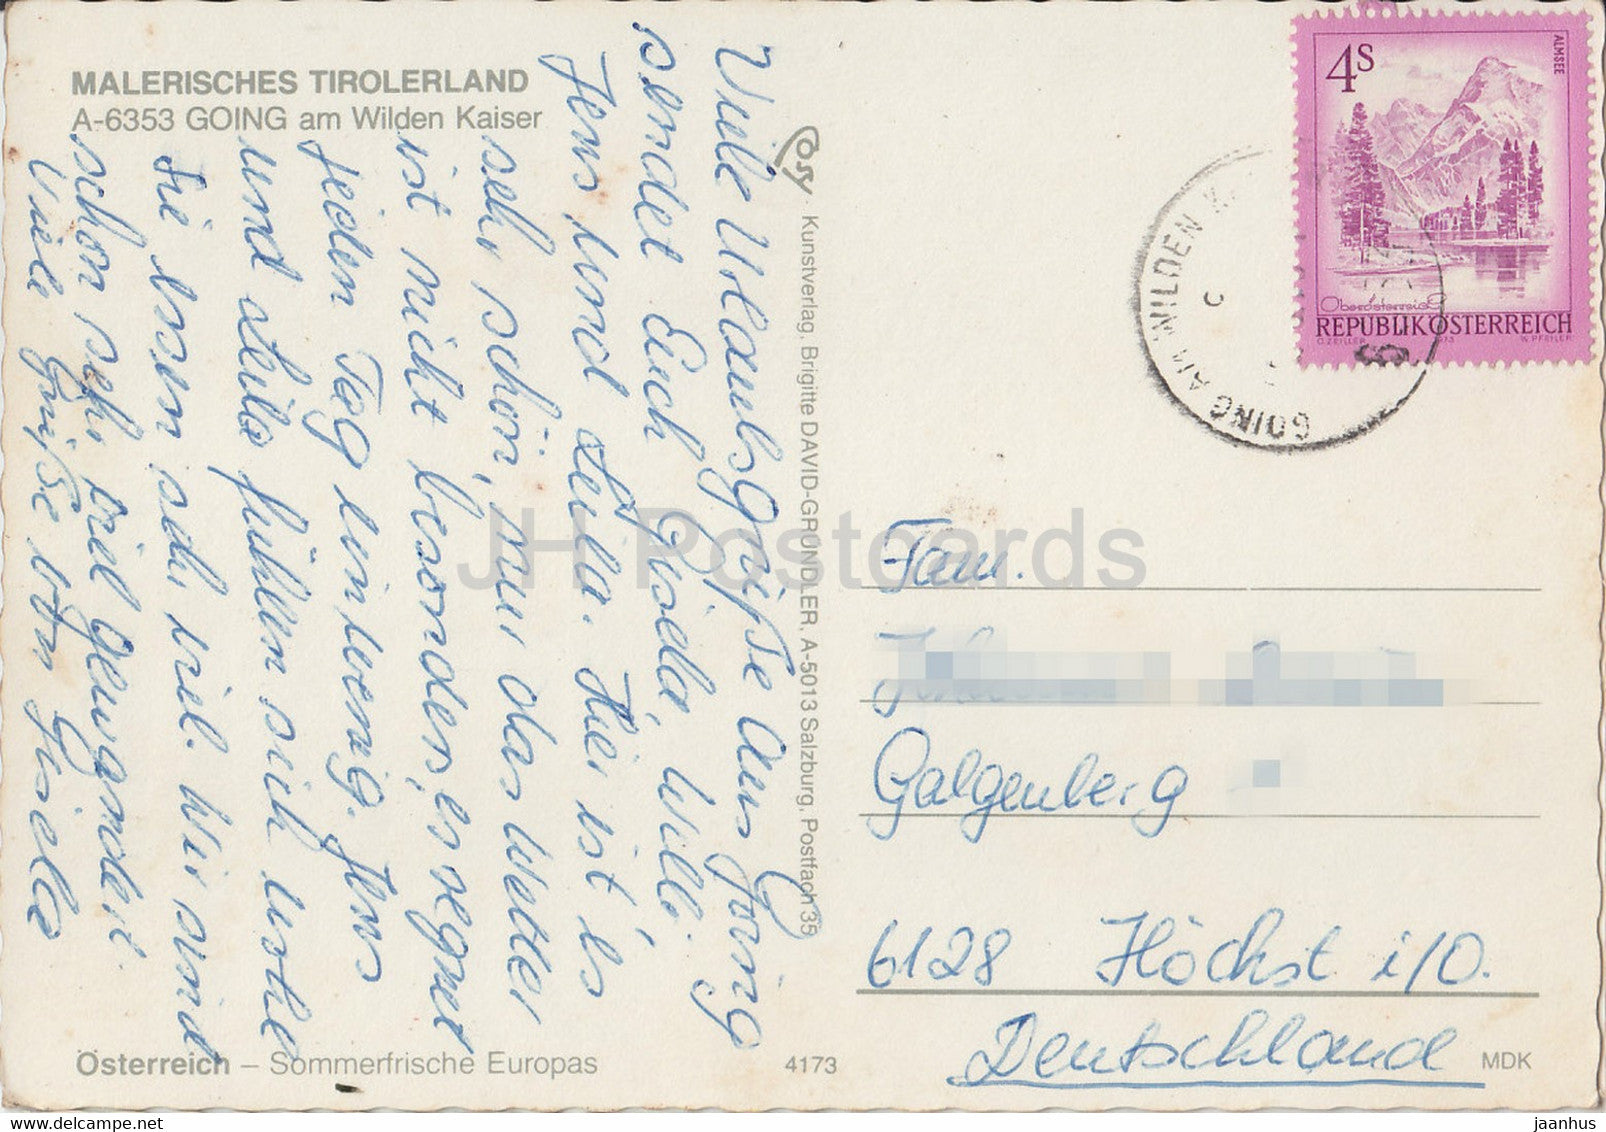 MALERISCHES TIROLERLAND
A-6353 GOING am Wilden Kaiser
Viele Urlaubsgrüße aus Going
sendet Euch Gisela, Willi
Jens und Leila. Hier ist es
sehr schön, nur das Wetter
ist nicht besonders, es regnet
jeden Tag ein wenig. Jens
und Leila fühlen sich wohl
Sie essen sehr viel. Wir sind
schon sehr viel gewandert
Viele Grüße von Gisela
Cosy · Kunstverlag, Brigitte DAVID-GRÜNDLER, A-5013 Salzburg, Postfach 35
4S
ALMSEE
Oberösterreich
REPUBLIK ÖSTERREICH
O. ZEILER 1973 W. PFEILER
GOING AM WILDEN
JH Postcards
Fam.
Galgenberg
6128 Höchst i/O.
Deutschland
Österreich – Sommerfrische Europas
4173
MDK
jaanhus
www.delcampe.net